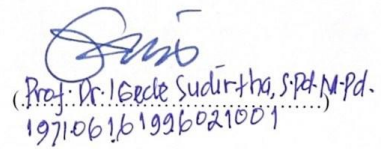 (Prof. Dr. I Gede Sudirtha, S.Pd. M.Pd.)
197106161996021001